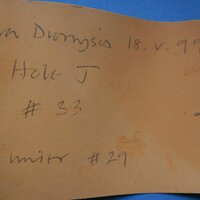 Dionysis 18. v. 99
Hole J
# 33
under # 29